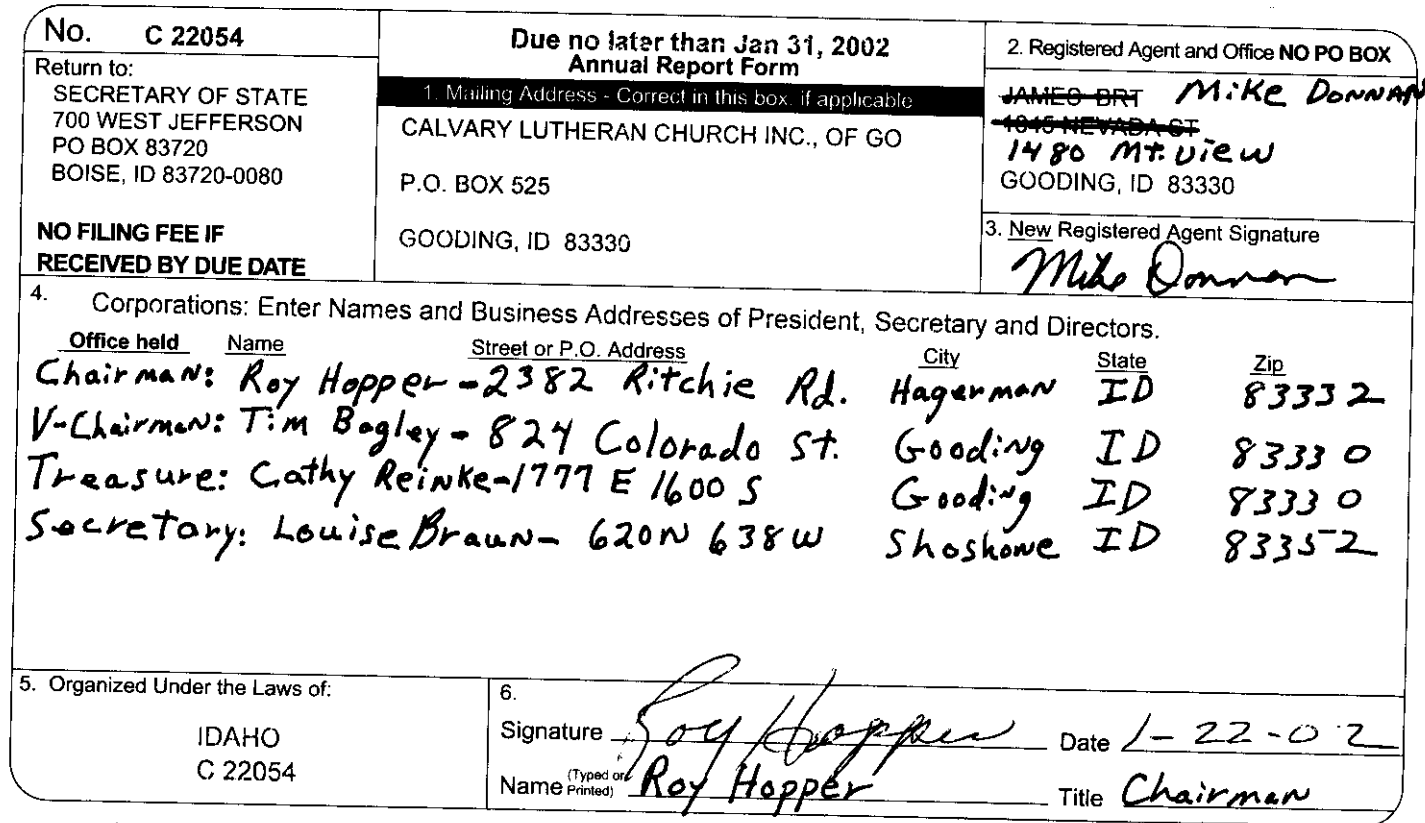 No. C 22054
Return to:
SECRETARY OF STATE
700 WEST JEFFERSON
PO BOX 83720
BOISE, ID 83720-0080
NO FILING FEE IF
RECEIVED BY DUE DATE
Due no later than Jan 31, 2002
Annual Report Form
1. Mailing Address - Correct in this box, if applicable
CALVARY LUTHERAN CHURCH INC., OF GO
P.O. BOX 525
GOODING, ID 83330
2. Registered Agent and Office NO PO BOX
JAMES BRT Mike Donnan
1045 NEVADA ST
1480 Mt. View
GOODING, ID 83330
3. New Registered Agent Signature
Mike Donnan
4. Corporations: Enter Names and Business Addresses of President, Secretary and Directors.
Office held Name Street or P.O. Address City State Zip
Chairman: Roy Hopper - 2382 Ritchie Rd. Hagerman ID 83332
V-Chairman: Tim Bagley - 824 Colorado St. Gooding ID 83330
Treasure: Cathy Reinke - 1777 E 1600 S Gooding ID 83330
Secretary: Louise Braun - 620 N 638 W Shoshone ID 83352
5. Organized Under the Laws of:
IDAHO
C 22054
6.
Signature Roy Hopper Date 1-22-02
Name (Typed or Printed) Roy Hopper Title Chairman